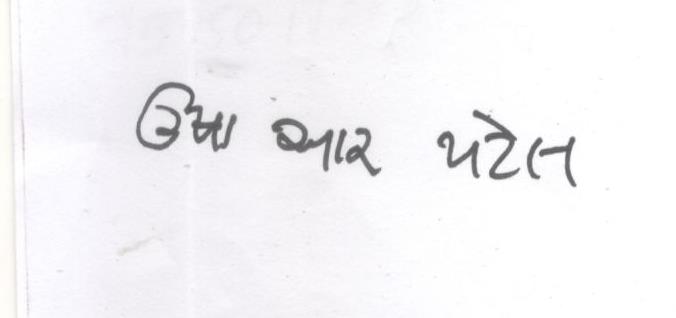 ઉષા આર પટેલ